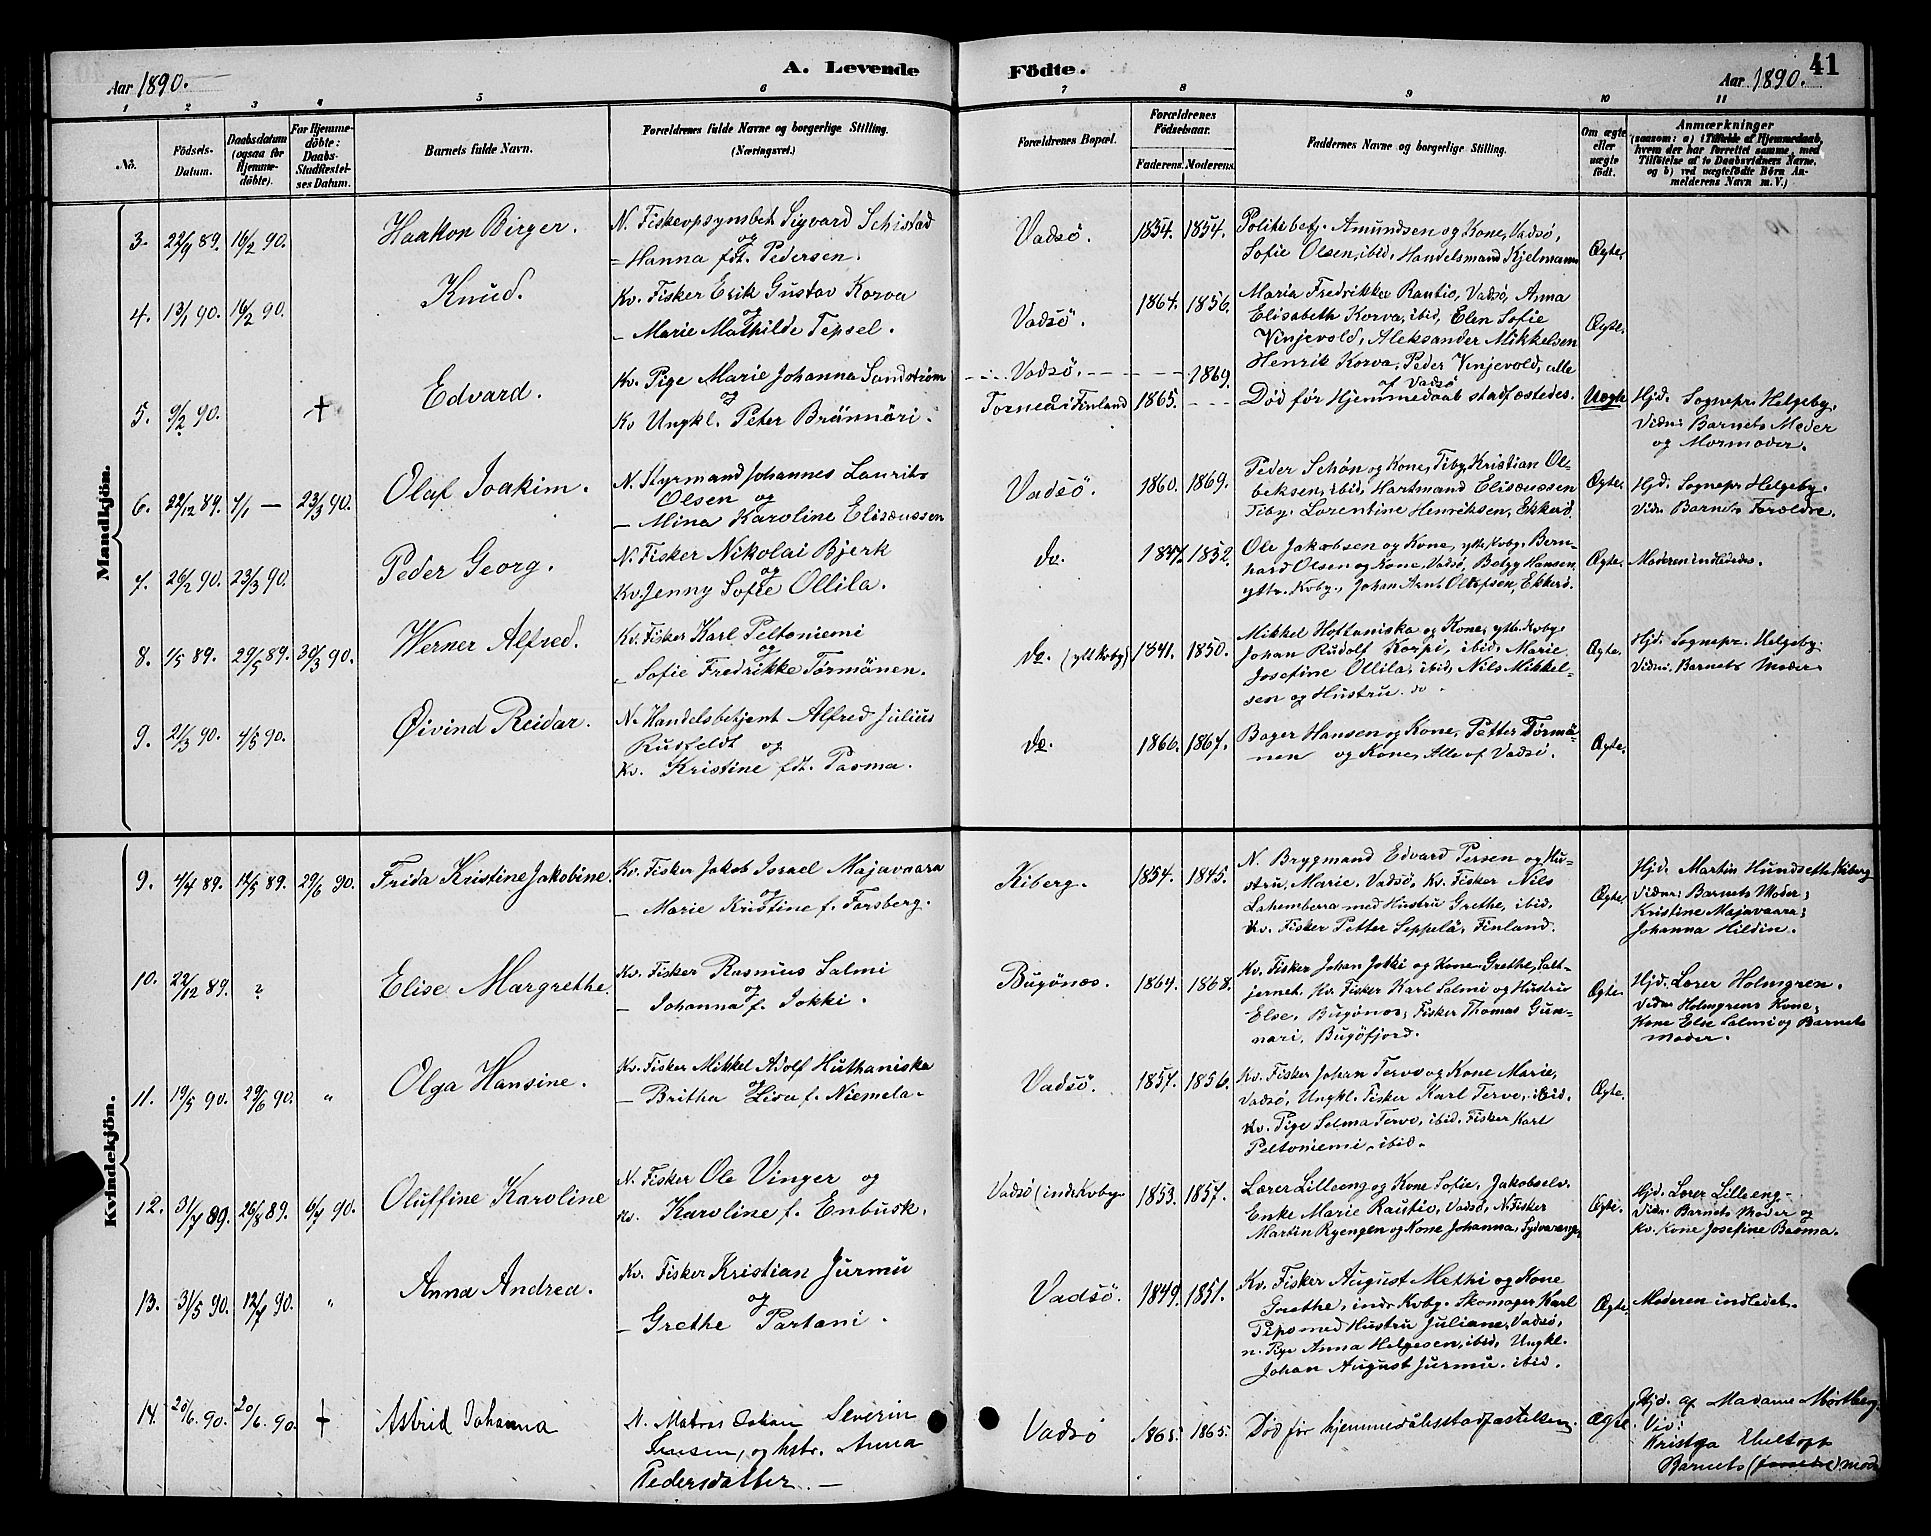 Aar 1890.
A. Levende
Födte.
Aar 1890.
41
1 2 3 4 5 6 7 8 9 10 11
No.
Födsels-Datum.
Daabsdatum (ogsaa for Hjemmedöbte).
For Hjemmedöbte: Daabs-Stadfæstelses Datum.
Barnets fulde Navn.
Forældrenes fulde Navne og borgerlige Stilling. (Næringsvei.)
Forældrenes Bopæl.
Forældrenes Födselsaar.
Faderens. Moderens.
Faddernes Navne og borgerlige Stilling.
Om ægte eller uægte födt.
Anmærkninger
(saasom: a) i Tilfælde af Hjemmedaab, hvem der har forrettet samme, med Tilföielse af to Daabsvidners Navne, og b) ved uægtefödte Börn Anmelderens Navn m. V.)
Mandkjön.
3. 22/9 89. 16/2 90. Haakon Birger.
N. Fiskeopsynsbet. Sigvard Schistad
og
= Hanna fdt. Pedersen.
Vadsö. 1854. 1854.
Politibetj. Amundsen og Kone, Vadsö,
Sofie Olsen, ibid, Handelsmand Kjelmann
Ægte.
4. 13/1 90. 16/2 90. Knud.
Kv. Fisker Erik Gustav Korva
og
– Marie Mathilde Tepsel.
Vadsö. 1864. 1856.
Maria Fredrikke Rautio, Vadsö, Anna
Elisabeth Korva, ibid, Elen Sofie
Vinjevold, Aleksander Mikkelsen
Henrik Korva, Peder Vinjevold, alle
af Vadsö
Ægte.
5. 9/2 90. + Edvard.
Kv. Pige Marie Johanna Sandström
og
Kv Ungkl. Peter Brännäri.
Vadsö. – – – 1869.
Torneå i Finland 1865. – – –
Död för Hjemmedaab stadfæstedes.
Uægte
Hjd. Sognepr. Helgeby.
Vidn: Barnets Moder
og Mormoder.
6. 22/12 89. 1/1 — 23/3 90. Olaf Joakim.
N. Styrmand Johannes Laurits
Olsen og
– Mina Karoline Elisæussen
Vadsö. 1860. 1869.
Peder Schön og Kone, Tiby, Kristian Ol-
beksen, ibid, Hartmand Elisæussen
Tiby. Lorentine Henriksen, Ekkerö.
Ægte.
Hjd. Sognepr. Helgeby.
Vidn. Barnets Forældre.
7. 26/2 90. 23/3 90. Peder Georg.
N. Fisker Nikolai Bjerk
og
Kv. Jenny Sofie Ollila.
do. 1847. 1852.
Ole Jakobsen og Kone, ytte Kvby. Bern-
hard Olsen og Kone, Vadsö, Hansen,
yttr. Kvby., Johan Arnt Ollefsen, Ekkerö.
Ægte.
Moderen indledede.
8. 1/5 89. 29/5 89. 30/3 90. Werner Alfred.
Kv. Fisker Karl Peltoniemi
og
– Sofie Fredrikke Törmänen.
do. (ytt Kvby) 1841. 1850.
Mikkel Hottaniska og Kone, ytte Kvby.
Johan Rudolf Korpi, ibid, Marie
Josefine Ollila, ibid, Nils Mikkel-
sen og Hustru. do.
Ægte.
Hjd. Sognepr. Helgeby.
Vidn: Barnets Moder
9. 21/3 90. 4/5 90. Öivind Reidar.
N. Handelsbetjent Alfred Julius
Rusfeldt og
Kv. Kristine fdt. Pasma.
do. 1866. 1867.
Bager Hansen og Kone, Petter Törmä-
nen og Kone, Alle af Vadsö.
Ægte.
Kvindekjön.
9. 4/4 89. 12/5 89. 29/6 90. Frida Kristine Jakobine.
Kv. Fisker Jakob Israel Majavaara
og
– Marie Kristine f. Forsberg.
Kiberg. 1854. 1845.
N. Brygmand Edvard Persen og Hu-
stru, Marie, Vadsö, Kv. Fisker Nils
Lahemberra med Hustru Grethe, ibid,
Kv. Fisker Petter Seppelä, Finland.
Ægte.
Hjd. Martin Hundsette Kiberg
Vidner: Barnets Moder,
Kristine Majavaara,
Johanna Hildin.
10. 22/12 89. ? Elise Margrethe.
Kv. Fisker Rasmus Salmi
og
– Johanna f. Jokki.
Bugönæs. 1864. 1868.
Kv. Fisker Johan Jokki og Kone Grethe, Salt-
jernet. Kv. Fisker Karl Salmi og Hustru
Else, Bugönæs, Fisker Thomas Gun-
nari, Bugöfjord.
Ægte.
Hjd. Lærer Holmgren.
Vidn: Holmgrens Kone,
Kone Else Salmi og Barnets
Moder.
11. 19/5 90. 29/6 90. " Olga Hansine.
Kv. Fisker Mikkel Adolf Huthaniska
og
– Britha Lisa f. Niemela.
Vadsö. 1857. 1856.
Kv. Fisker Johan Tervo og Kone Marie,
Vadsö, Ungkl. Fisker Karl Tervo, ibid.
Kv. Pige Selma Tervo, ibid. Fisker Karl
Peltoniemi, ibid.
Ægte.
12. 31/7 89. 26/8 89. 6/7 90. Oluffine Karoline
N. Fisker Ole Vinger og
Kv. Karoline f. Enbusk.
Vadsö (indr. Kvby) 1853. 1857.
Lærer Lilleeng og Kone Sofie, Jakobselv.
Enke Marie Rautio, Vadsö, N. Fisker
Martin Ryengen og Kone Johanna, Sydvaranger
Ægte.
Hjd. Lærer Lilleeng.
Vidn: Barnets Moder og
Kv. Kone Josefine Basma.
13. 31/5 90. 12/7 90. " Anna Andrea.
Kv. Fisker Kristian Jurmu
og
– Grethe Partani.
Vadsö. 1849. 1851.
Kv. Fisker August Methi og Kone
Grethe, indr Kvby. Skomager Karl
Pipo med Hustru Juliane, Vadsö,
n. Pige Anna Helgesen, ibid, Ungkl.
Johan August Jurmu. ibid.
Ægte.
Moderen indledet.
14. 20/6. 90. 20/6. 90. + Astrid Johanna
N. Matros Johan Severin
Jensen, og hstr. Anna
Pedersdatter. —
Vadsö 1865. 1865.
Död för hjemmedåbsstadfæstelsen.
Ægte.
Hjd. af Madame Mörtberg.
Vid:
Kristga
Barnets (Forældre) mod